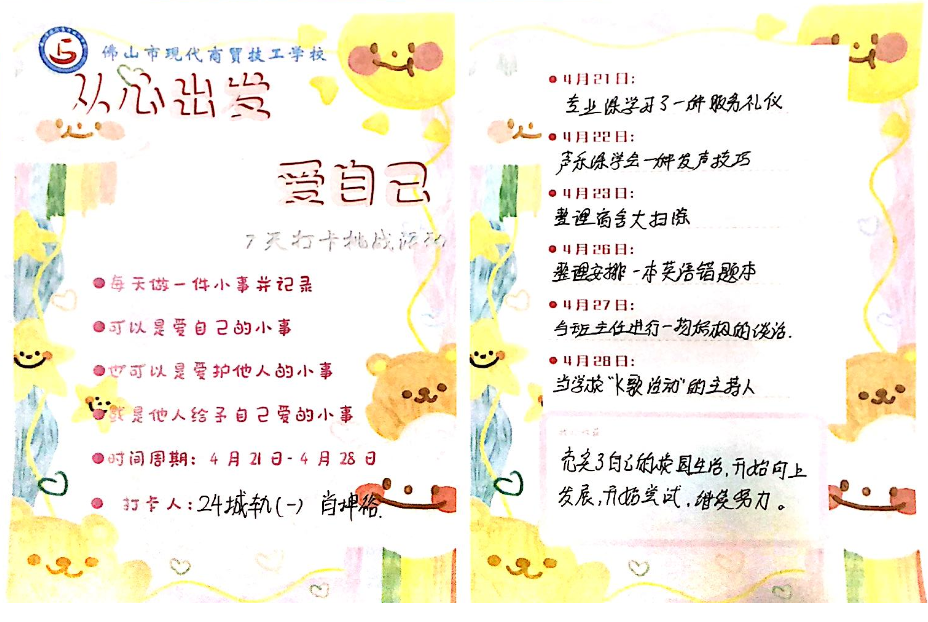 佛山市现代商贸技工学校
从心出发
爱自己
7天打卡挑战活动
每天做一件小事并记录
可以是爱自己的小事
也可以是爱护他人的小事
或是他人给予自己爱的小事
时间周期：4月21日-4月28日
打卡人：24城轨(一) 肖坤裕
4月21日：
专业课学习了一种服务礼仪
4月22日：
声乐课学会一种发声技巧
4月23日：
整理宿舍大扫除
4月26日：
整理安排一本英语错题本
4月27日：
与班主任进行一场的谈话.
4月28日：
当学校"K歌活动"的主持人
充实了自己的校园生活,开始向上
发展,开始尝试,继续努力。